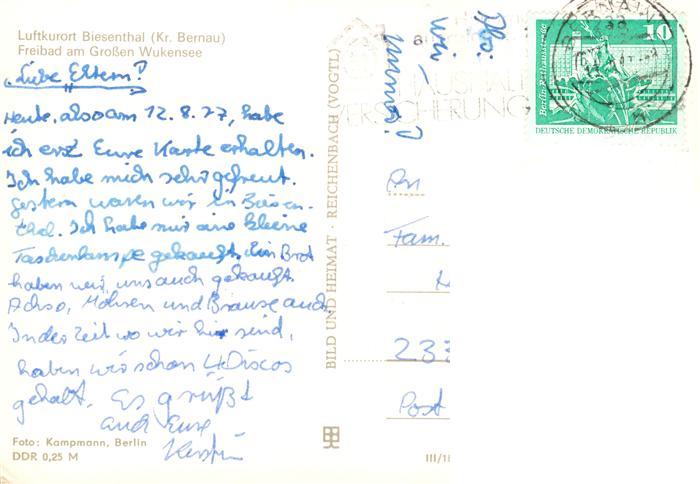 Luftkurort Biesenthal (Kr. Bernau)
Freibad am Großen Wukensee
"Liebe Eltern!
Heute, also am 12.8.77, habe
ich erst Eure Karte erhalten.
Ich habe mich sehr gefreut.
Gestern waren wir in Biesen-
thal. Ich habe mir eine kleine
Taschenlampe gekauft. Ein Brot
haben wir uns auch gekauft.
Achso, Möhren und Brause auch.
In der Zeit wo wir hier sind,
haben wir schon 4 Discos
gehabt. Es grüßt
auch Eure
Kerstin
Foto: Kampmann, Berlin
DDR 0,25 M
BILD UND HEIMAT · REICHENBACH (VOGTL)
III/18
HAUSHALT
VERSICHERUNG
10
Berlin-Rathausstraße
DEUTSCHE DEMOKRATISCHE REPUBLIK
An
Fam.
23
Post